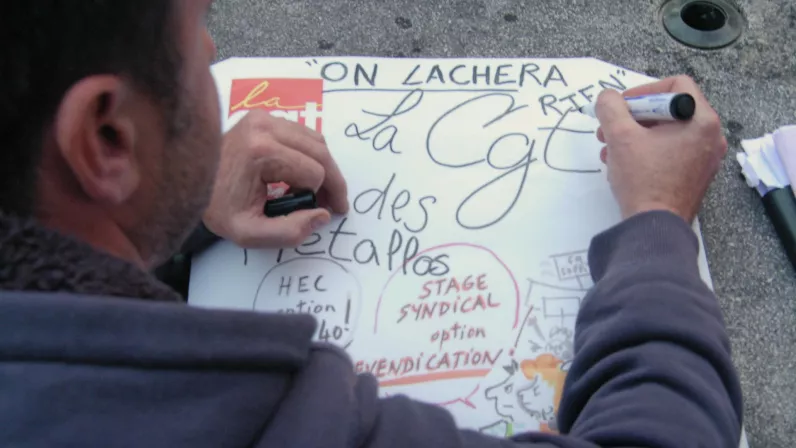 "ON LACHERA RIEN"
la
cgt
La Cgt
des
Métallos
HEC
option
40!
STAGE
SYNDICAL
option
REVENDICATION!